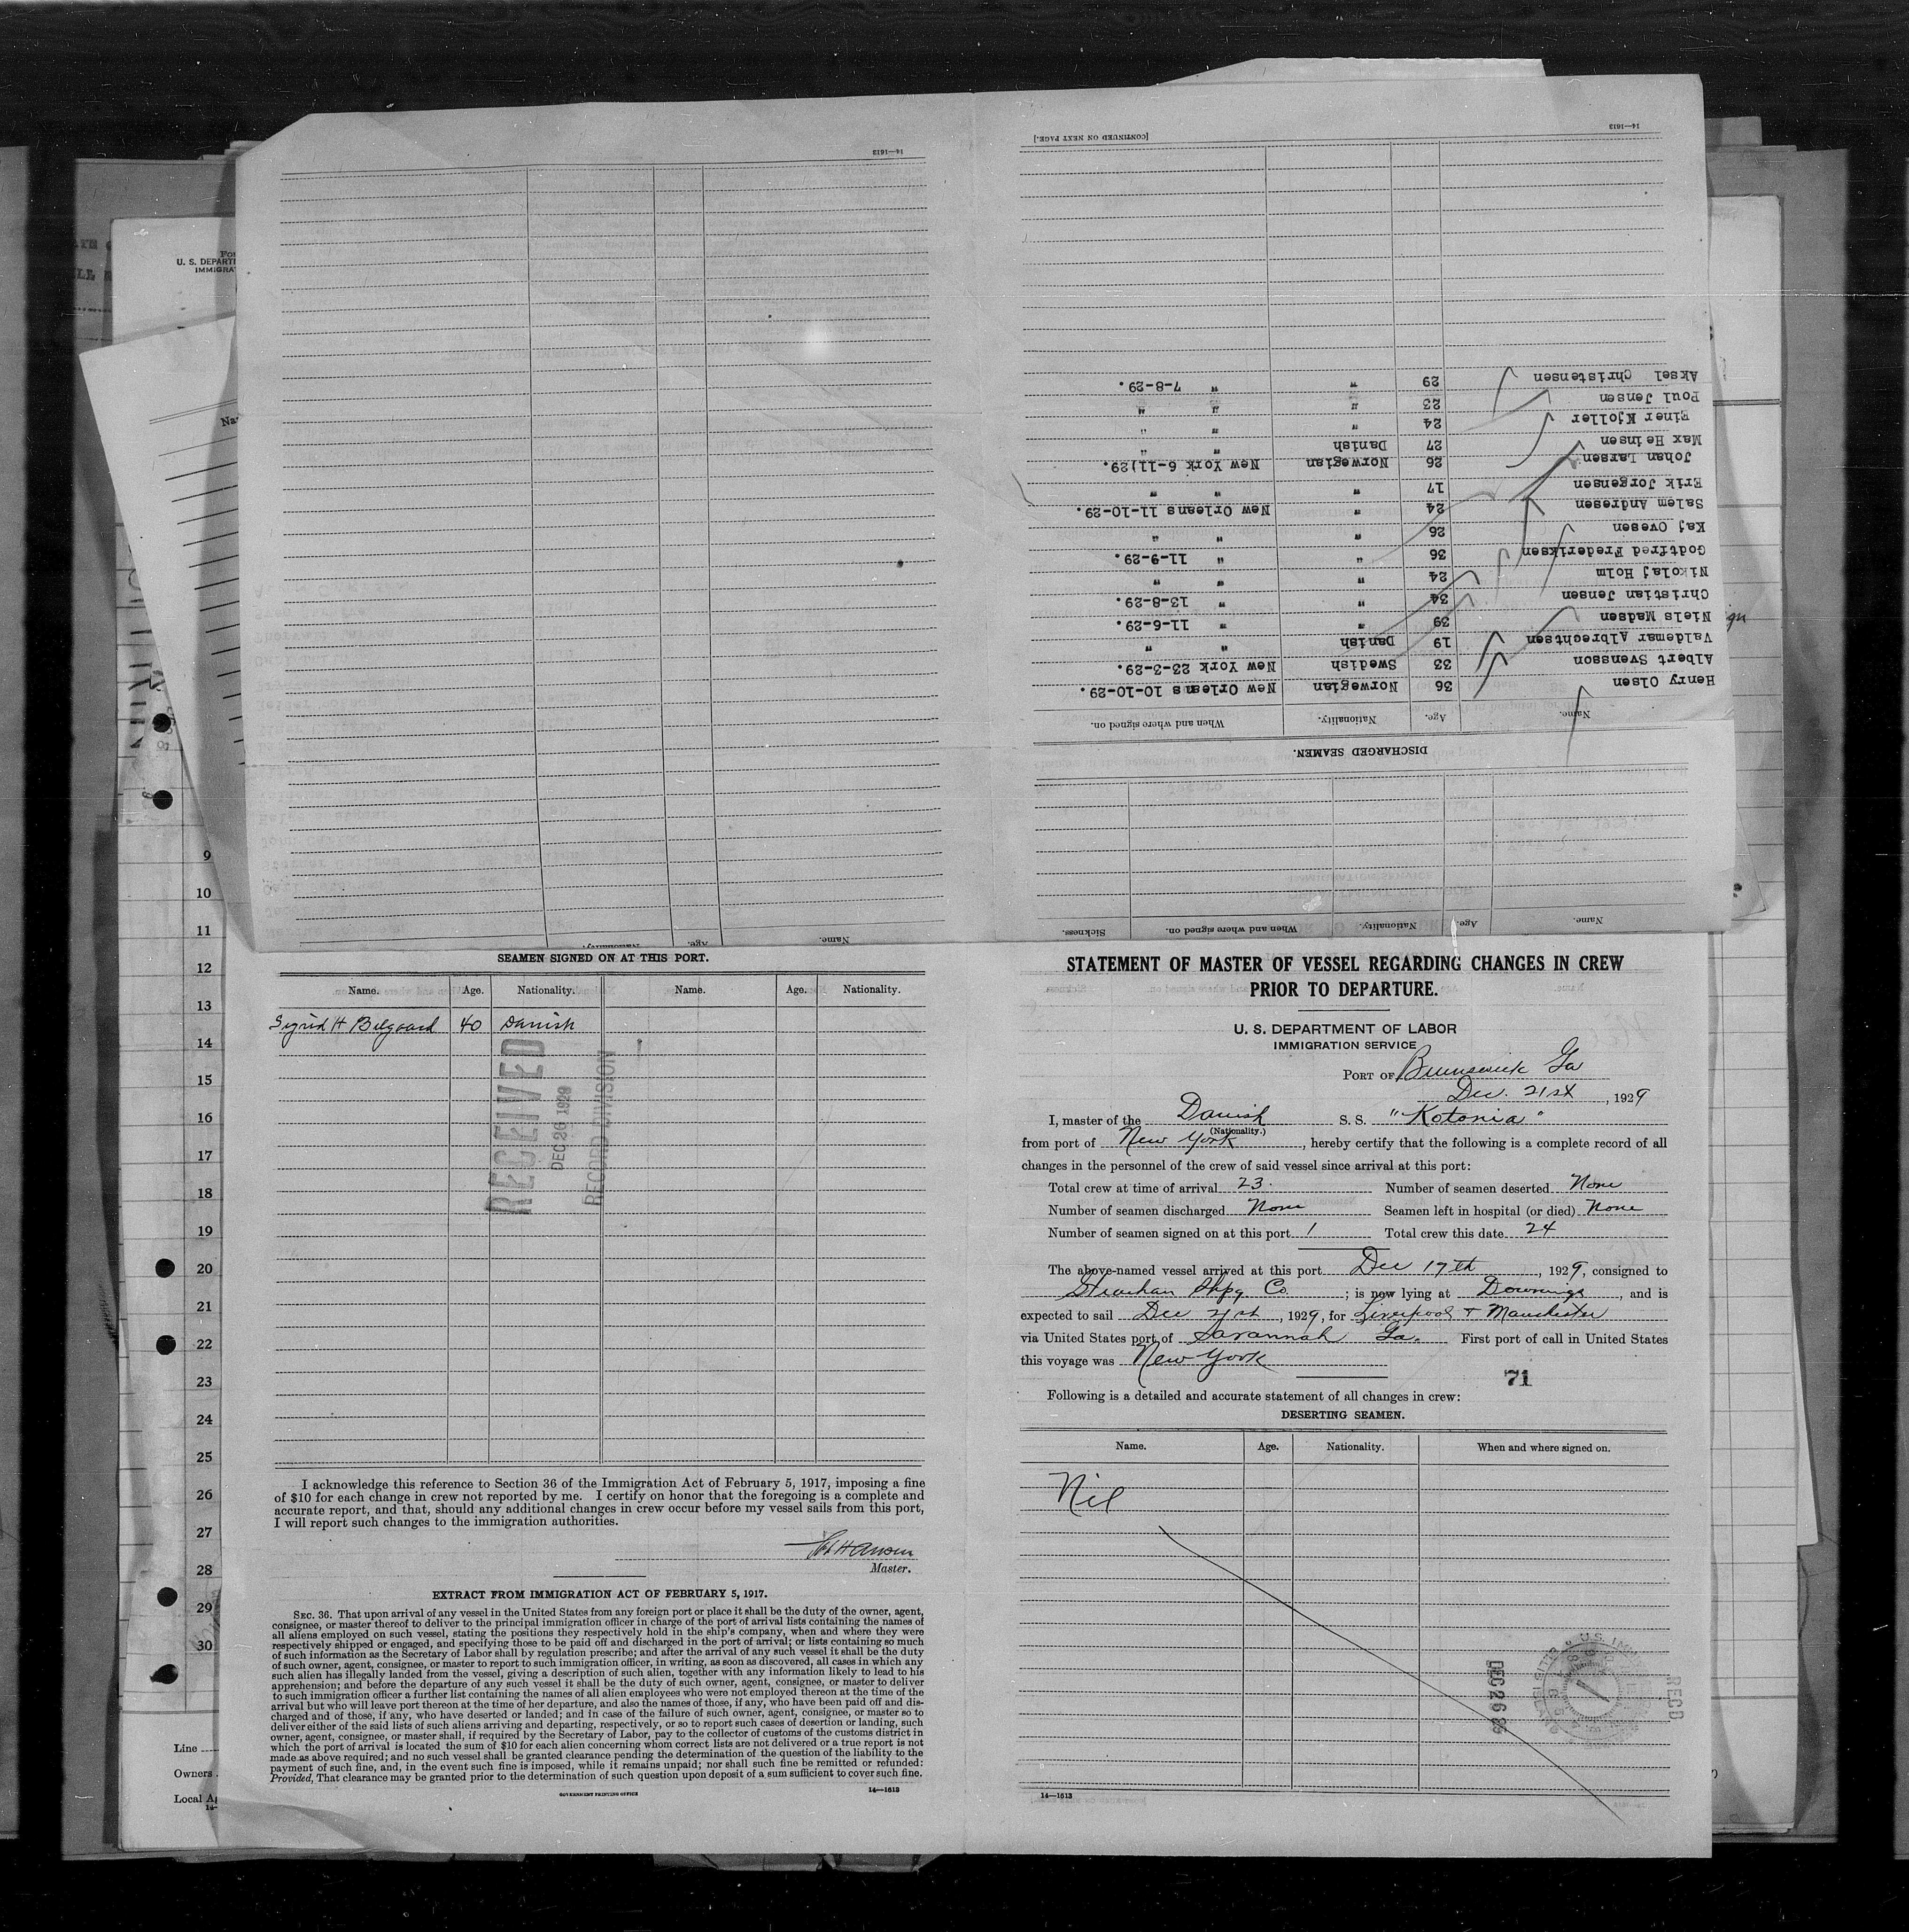 14—1613
[CONTINUED ON NEXT PAGE.]
14—1613
Aksel Christensen 29 " " 7-8-29.
Poul Jensen 23 " " "
Einer Kjoller 24 " " "
Max Heinsen 27 Danish " "
Johan Larsen 26 Norwegian New York 6-11)29.
Erik Jorgensen 17 " " "
Salem Andresen 24 " New Orleans 11-10-29.
Kaj Ovesen 26 " " "
Godtfred Frederiksen 36 " " 11-9-29.
Nikolaj Holm 24 " " "
Christian Jensen 34 " " 13-8-29.
Niels Madsen 39 " " 11-6-29.
Valdemar Albrechtsen 19 Danish " "
Albert Svensson 33 Swedish New York 23-3-29.
Henry Olsen 36 Norwegian New Orleans 10-10-29.
Name. Age. Nationality. When and where signed on.
DISCHARGED SEAMEN.
Name. Age. Nationality. When and where signed on. Sickness.
Name. Age. Nationality.
U. S. DEPART
IMMIGRA
9
10
11
12
13
14
15
16
17
18
19
20
21
22
23
24
25
26
27
28
29
30
Line
Owners
Local A
SEAMEN SIGNED ON AT THIS PORT.
Name. Age. Nationality. Name. Age. Nationality.
Sigrid H Belgaard 40 Danish
RECEIVED
DEC 26 1929
RECORD DIVISION
I acknowledge this reference to Section 36 of the Immigration Act of February 5, 1917, imposing a fine
of $10 for each change in crew not reported by me. I certify on honor that the foregoing is a complete and
accurate report, and that, should any additional changes in crew occur before my vessel sails from this port,
I will report such changes to the immigration authorities.
Master.
EXTRACT FROM IMMIGRATION ACT OF FEBRUARY 5, 1917.
SEC. 36. That upon arrival of any vessel in the United States from any foreign port or place it shall be the duty of the owner, agent,
consignee, or master thereof to deliver to the principal immigration officer in charge of the port of arrival lists containing the names of
all aliens employed on such vessel, stating the positions they respectively hold in the ship's company, when and where they were
respectively shipped or engaged, and specifying those to be paid off and discharged in the port of arrival; or lists containing so much
of such information as the Secretary of Labor shall by regulation prescribe; and after the arrival of any such vessel it shall be the duty
of such owner, agent, consignee, or master to report to such immigration officer, in writing, as soon as discovered, all cases in which any
such alien has illegally landed from the vessel, giving a description of such alien, together with any information likely to lead to his
apprehension; and before the departure of any such vessel it shall be the duty of such owner, agent, consignee, or master to deliver
to such immigration officer a further list containing the names of all alien employees who were not employed thereon at the time of the
arrival but who will leave port thereon at the time of her departure, and also the names of those, if any, who have been paid off and dis-
charged and of those, if any, who have deserted or landed; and in case of the failure of such owner, agent, consignee, or master so to
deliver either of the said lists of such aliens arriving and departing, respectively, or so to report such cases of desertion or landing, such
owner, agent, consignee, or master shall, if required by the Secretary of Labor, pay to the collector of customs of the customs district in
which the port of arrival is located the sum of $10 for each alien concerning whom correct lists are not delivered or a true report is not
made as above required; and no such vessel shall be granted clearance pending the determination of the question of the liability to the
payment of such fine, and, in the event such fine is imposed, while it remains unpaid; nor shall such fine be remitted or refunded:
Provided, That clearance may be granted prior to the determination of such question upon deposit of a sum sufficient to cover such fine.
GOVERNMENT PRINTING OFFICE 14—1613
STATEMENT OF MASTER OF VESSEL REGARDING CHANGES IN CREW
PRIOR TO DEPARTURE.
U. S. DEPARTMENT OF LABOR
IMMIGRATION SERVICE
PORT OF Brunswick Ga
Dec. 21st, 1929
I, master of the Danish S. S. "Kotonia"
(Nationality.)
from port of New York, hereby certify that the following is a complete record of all
changes in the personnel of the crew of said vessel since arrival at this port:
Total crew at time of arrival 23. Number of seamen deserted None
Number of seamen discharged None Seamen left in hospital (or died) None
Number of seamen signed on at this port 1 Total crew this date 24
The above-named vessel arrived at this port Dec 17th, 1929, consigned to
Strachan Shpg. Co.; is now lying at Downings, and is
expected to sail Dec 21st, 1929, for Liverpool + Manchester
via United States port of Savannah Ga. First port of call in United States
this voyage was New York
71
Following is a detailed and accurate statement of all changes in crew:
DESERTING SEAMEN.
Name. Age. Nationality. When and where signed on.
Nil
DEC 26
REC'D
14—1613